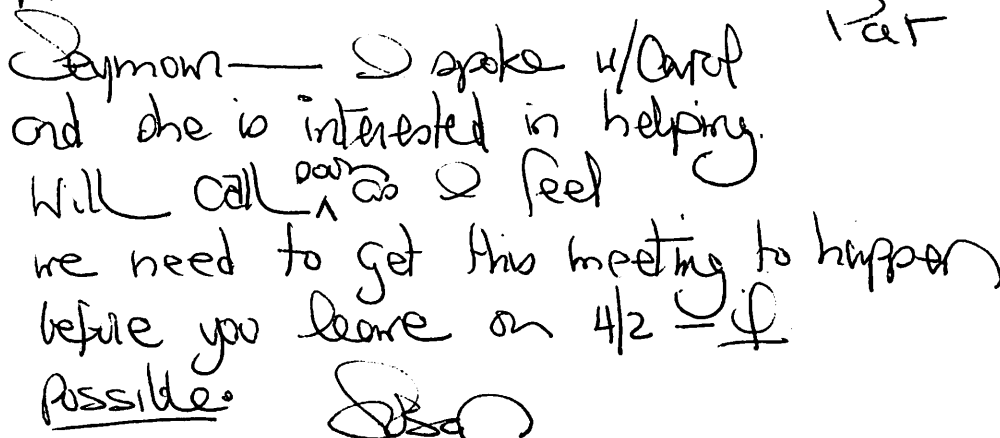 Pat
Seymour — I spoke w/Carol
and she is interested in helping.
Will call soon as I feel
we need to get this meeting to happen
before you leave on 4/2 — if
possible.
Susan